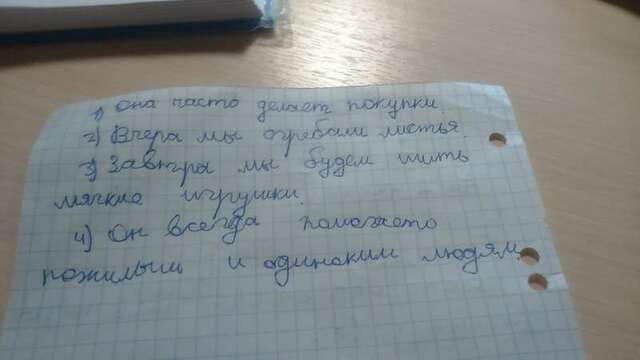 1) она часто делает покупки.
2) Вчера мы огребали листья.
3) Завтра мы будем шить
мягкие игрушки.
4) Он всегда помогает
пожилым и одиноким людям.